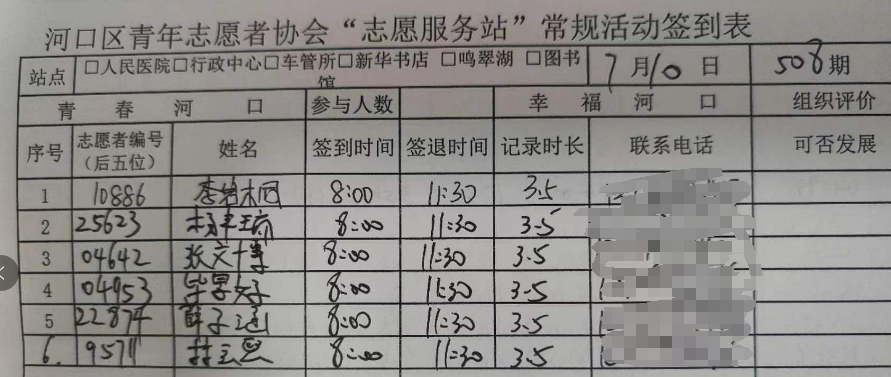 河口区青年志愿者协会“志愿服务站”常规活动签到表
站点 □人民医院□行政中心□车管所□新华书店 □鸣翠湖 □图书馆 7月10日 508期
青春河口 参与人数 幸福河口 组织评价
序号 志愿者编号（后五位） 姓名 签到时间 签退时间 记录时长 联系电话 可否发展
1 10886 8:00 11:30 3.5
2 25623 8:00 11:30 3.5
3 04642 张文博 8:00 11:30 3.5
4 04953 8:00 11:30 3.5
5 22874 薛子涵 8:00 11:30 3.5
6. 9571 8:00 11:30 3.5